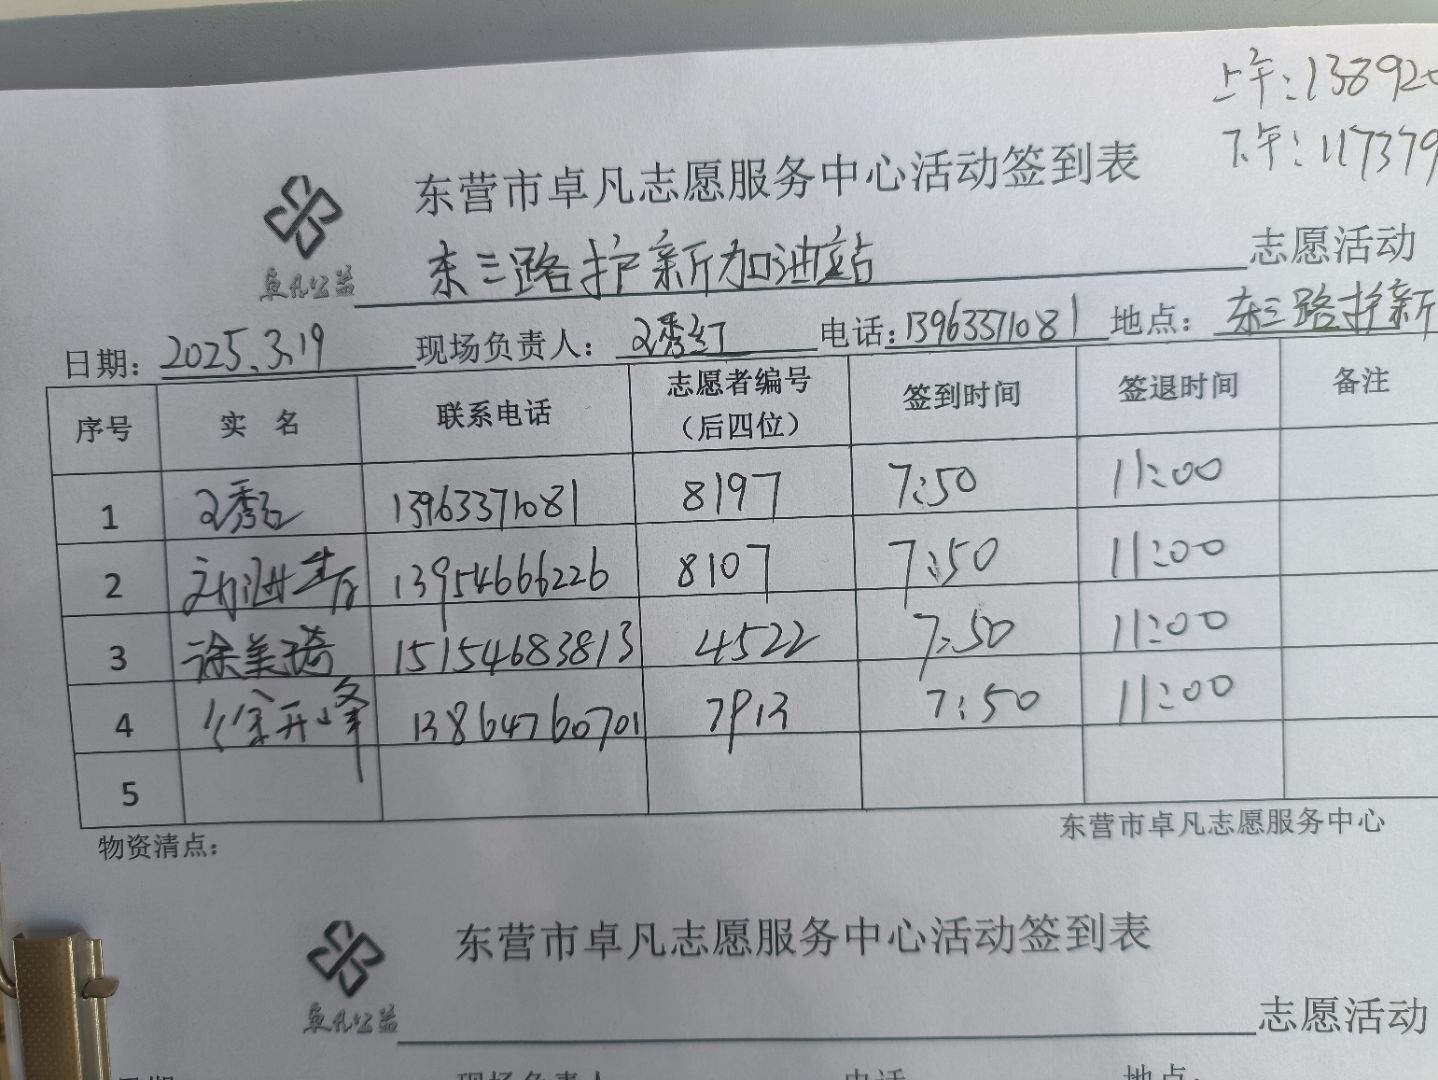 上午:138920
下午:117379
东营市卓凡志愿服务中心活动签到表
卓凡公益
东三路护新加油站 志愿活动
日期:2025.3.19 现场负责人:秀红 电话:13963371081 地点:东三路护新
序号 实 名 联系电话 志愿者编号(后四位) 签到时间 签退时间 备注
1 秀红 13963371081 8197 7:50 11:00
2 13954666226 8107 7:50 11:00
3 徐美琦 15154683813 4522 7:50 11:00
4 徐开峰 13864760701 7913 7:50 11:00
5
物资清点: 东营市卓凡志愿服务中心
东营市卓凡志愿服务中心活动签到表
卓凡公益
志愿活动
日期 现场负责人 电话 地点: